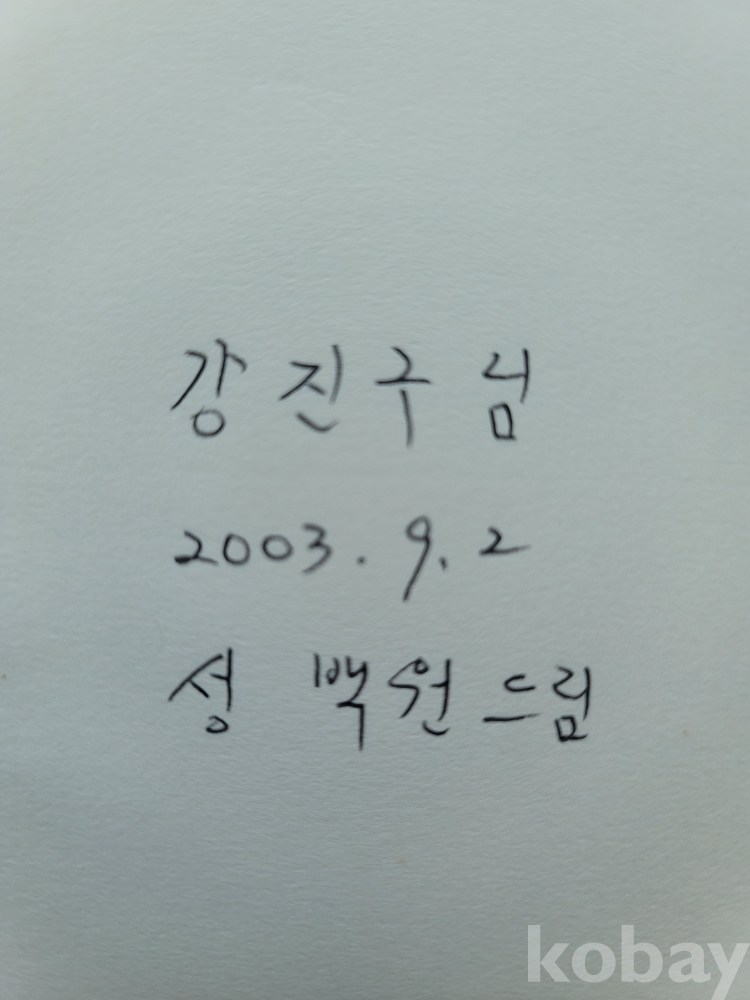 강진구님
2003. 9. 2
성백원드림
kobay